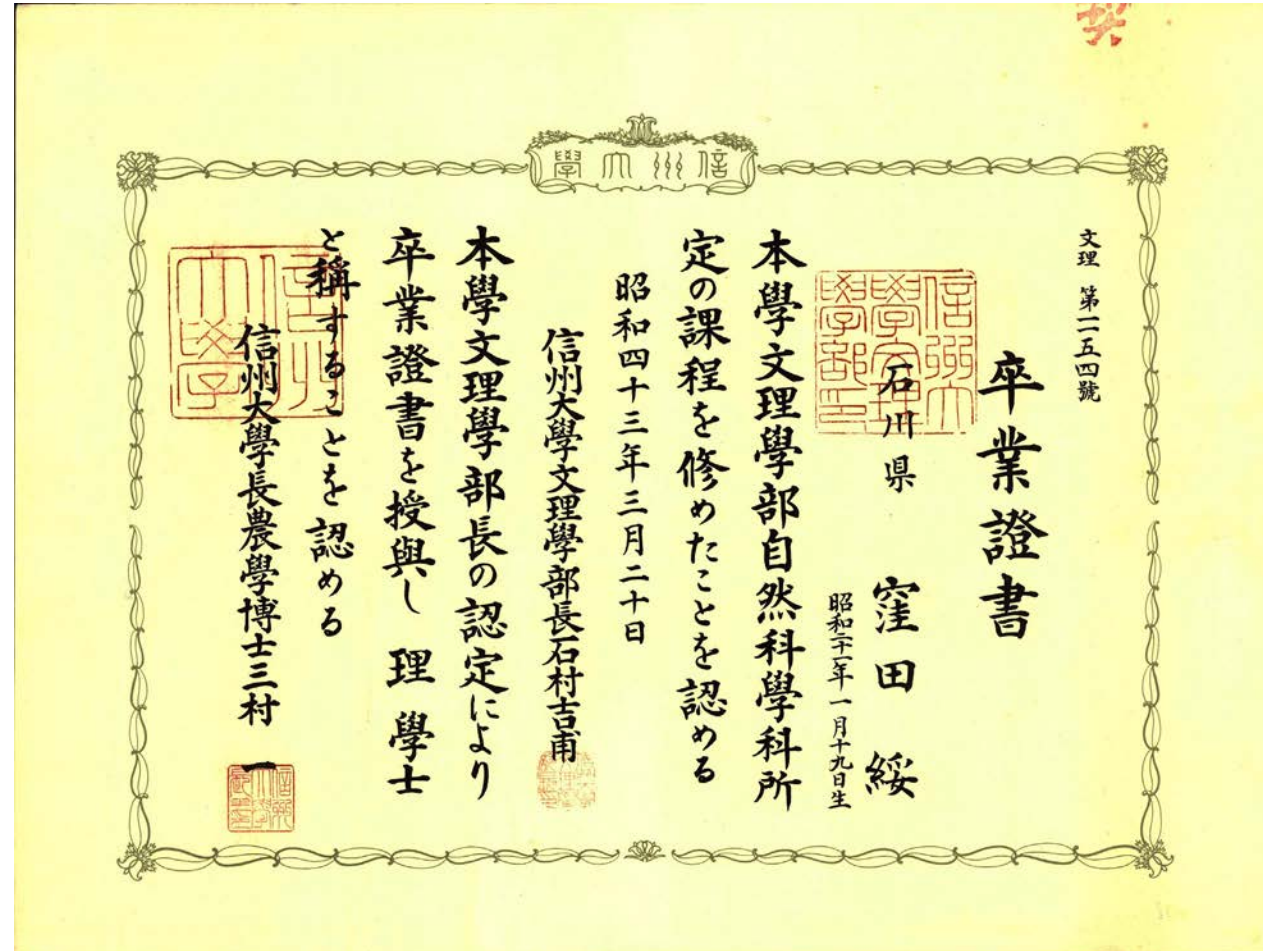 信州大學
文理 第一一五四號
卒業證書
石川県 窪田 綏
昭和二十一年一月十九日生
信州大學文理學部印
本學文理學部自然科學科所
定の課程を修めたことを認める
昭和四十三年三月二十日
信州大學文理學部長石村吉甫
本學文理學部長の認定により
卒業證書を授與し 理學士
と稱することを認める
信州大學長農學博士三村 一
信州大學